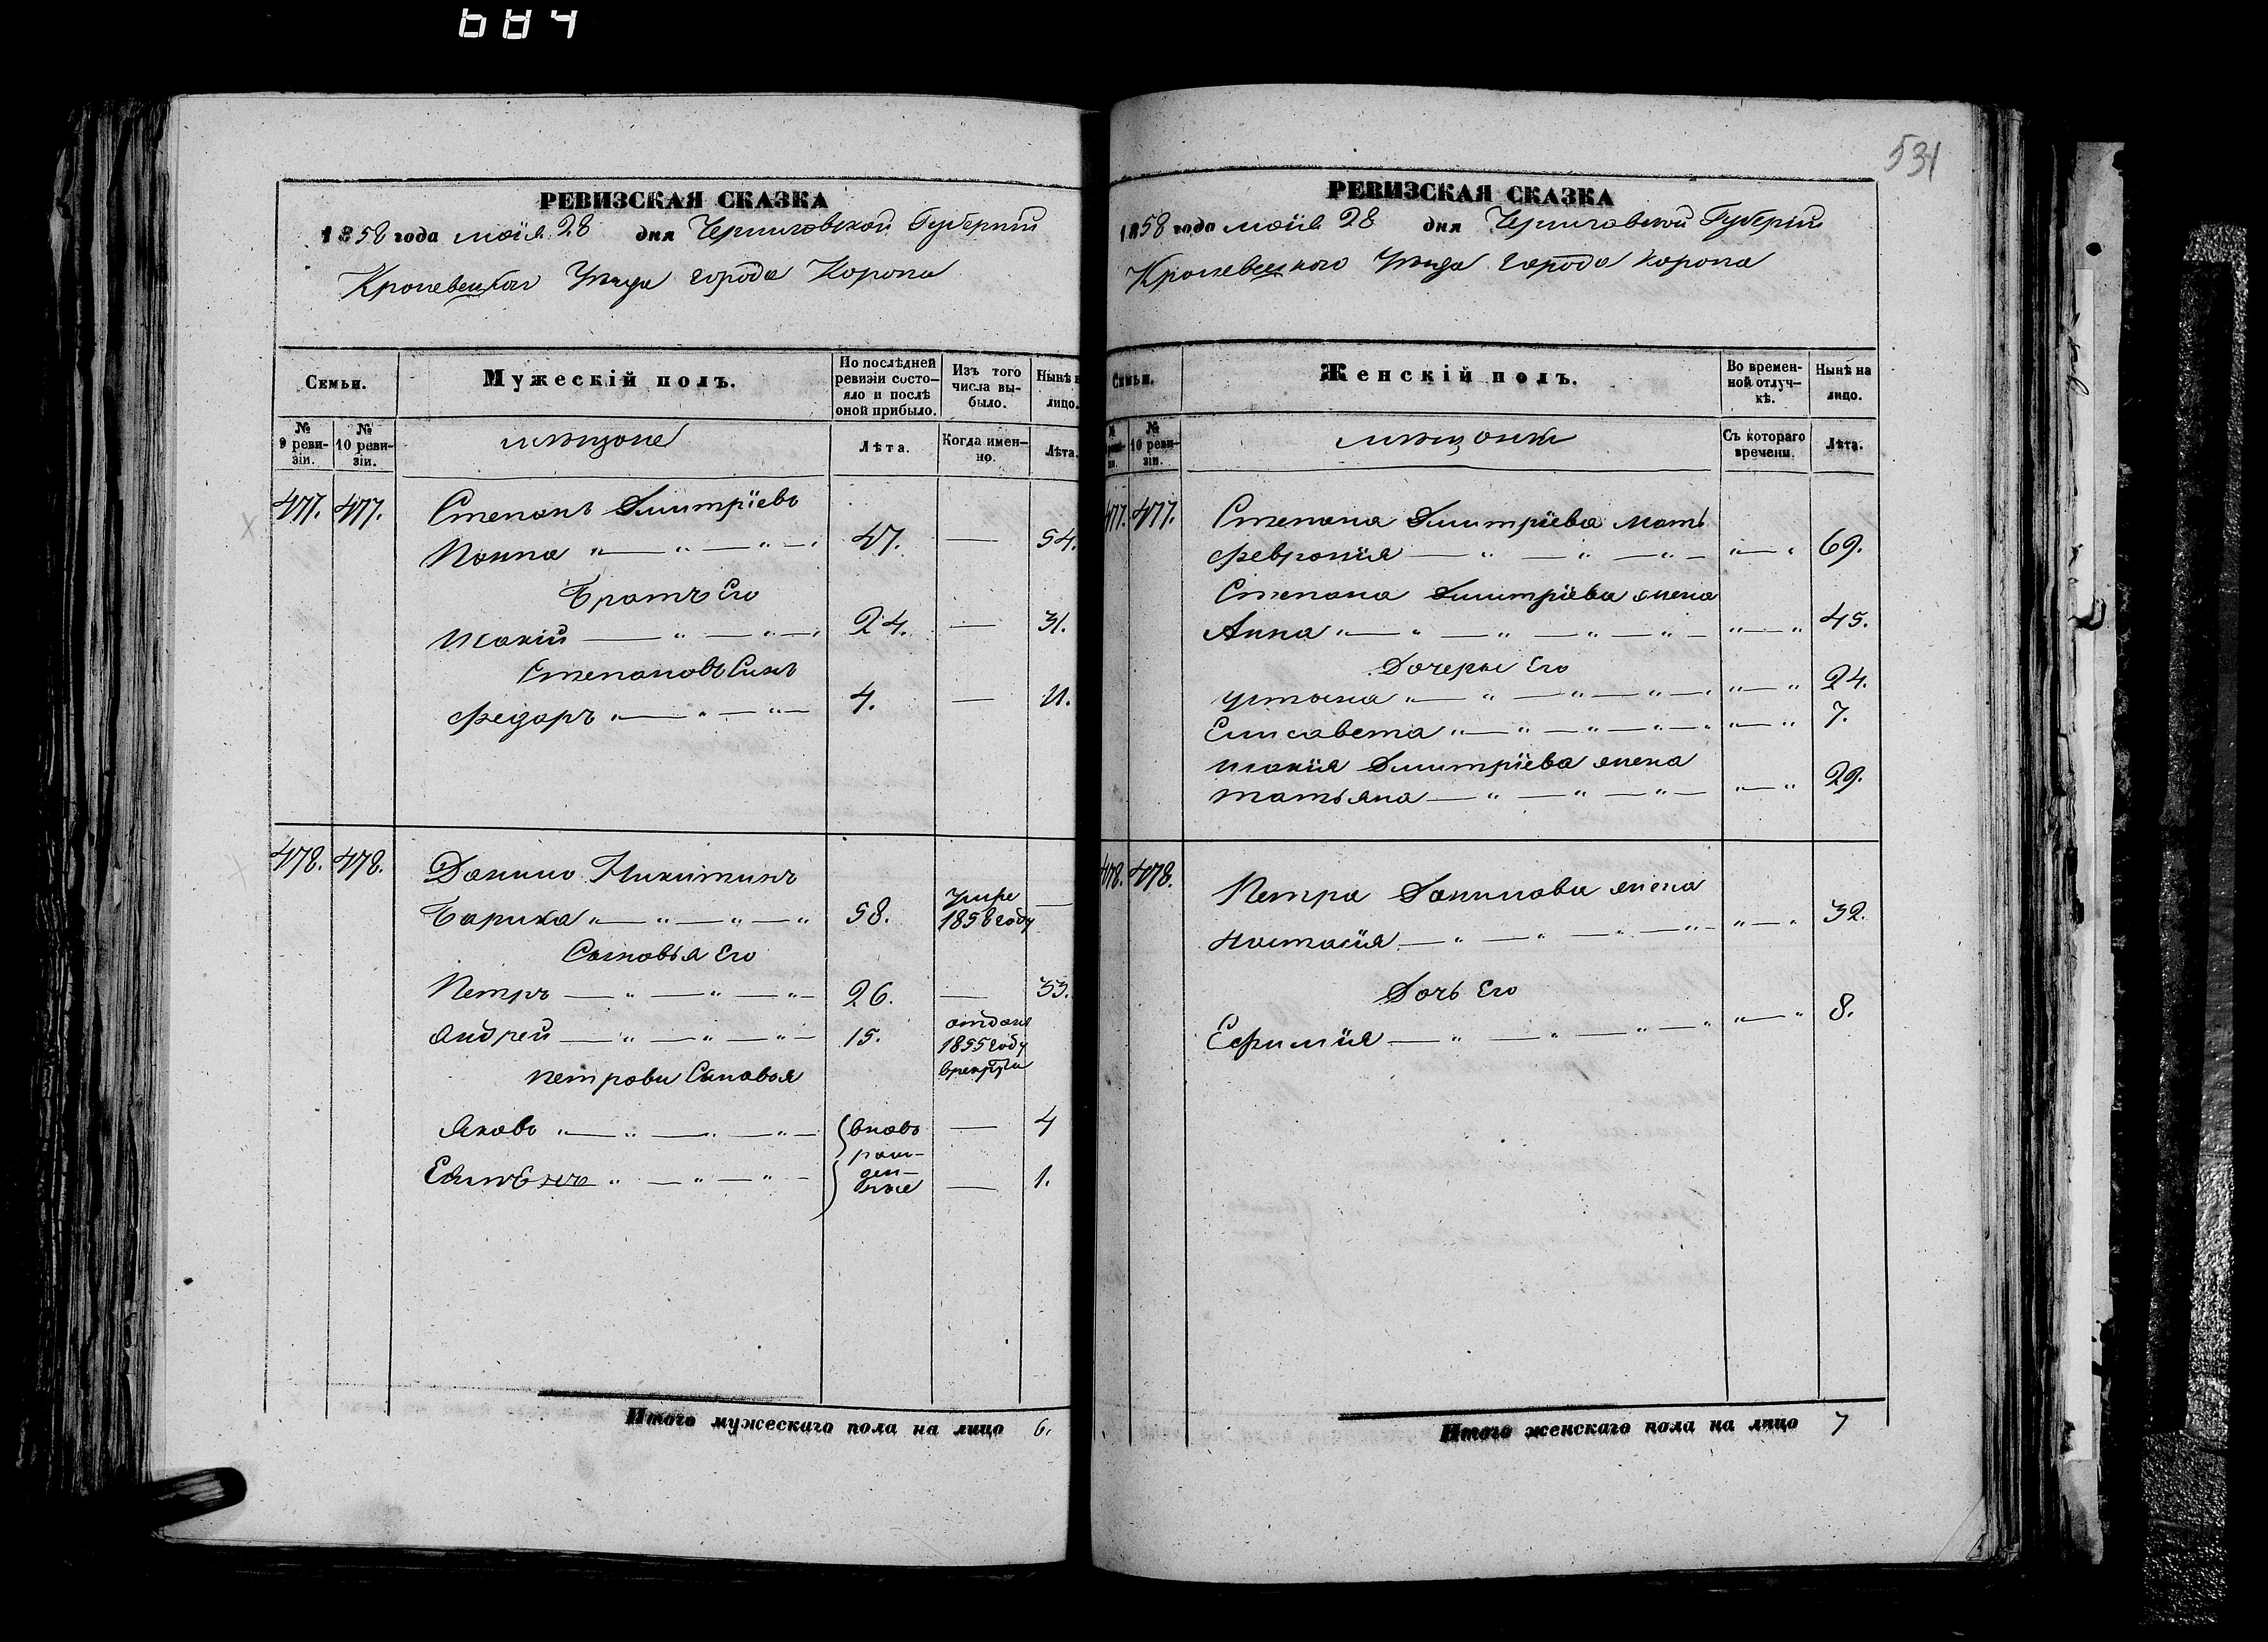 684
531
РЕВИЗСКАЯ СКАЗКА
1858 года маія 28 дня Черниговской Губерніи
Кролевецкаго Уѣзда города Коропа
Семьи. Мужескій полъ. По послѣдней ревизіи состо-яло и послѣ оной прибыло. Изъ того числа вы-было. Нынѣ н лицо.
№ 9 реви-зіи. № 10 реви-зіи. мѣщане Лѣта. Когда имен-но. Лѣта.
477. 477. Степанъ Дмитріевъ
47. — 54.
Братъ Его
24. — 31.
Степановъ Сынъ
Федоръ 4. — 11.
478. 478. Данило Никитинъ
58. умре 1858 году —
Сыновья Его
Петръ 26. — 33.
Андрей 15. отданъ 1855 году врекруты
Петровы Сыновья
Яковъ вновь — 4
рож-
ден-
ные — 1.
Итого мужескаго пола на лицо 6.
РЕВИЗСКАЯ СКАЗКА
1858 года маія 28 дня Черниговской Губерніи
Кролевецкаго Уѣзда города Коропа
Семьи. Женскій полъ. Во времен-ной отлуч-кѣ. Нынѣ на лицо.
№ 10 реви-зіи. мѣщанки Съ котораго времени. Лѣта.
477. 477. Степана Дмитріева мать
Февронія 69.
Степана Дмитріева жена
Анна 45.
Дочеры Его
24.
Елисавета 7.
Дмитріева жена
Татьяна 29.
478. 478. Петра Данилова жена
Настасія 32.
Дочь Его
Ефимія 8.
Итого женскаго пола на лицо 7